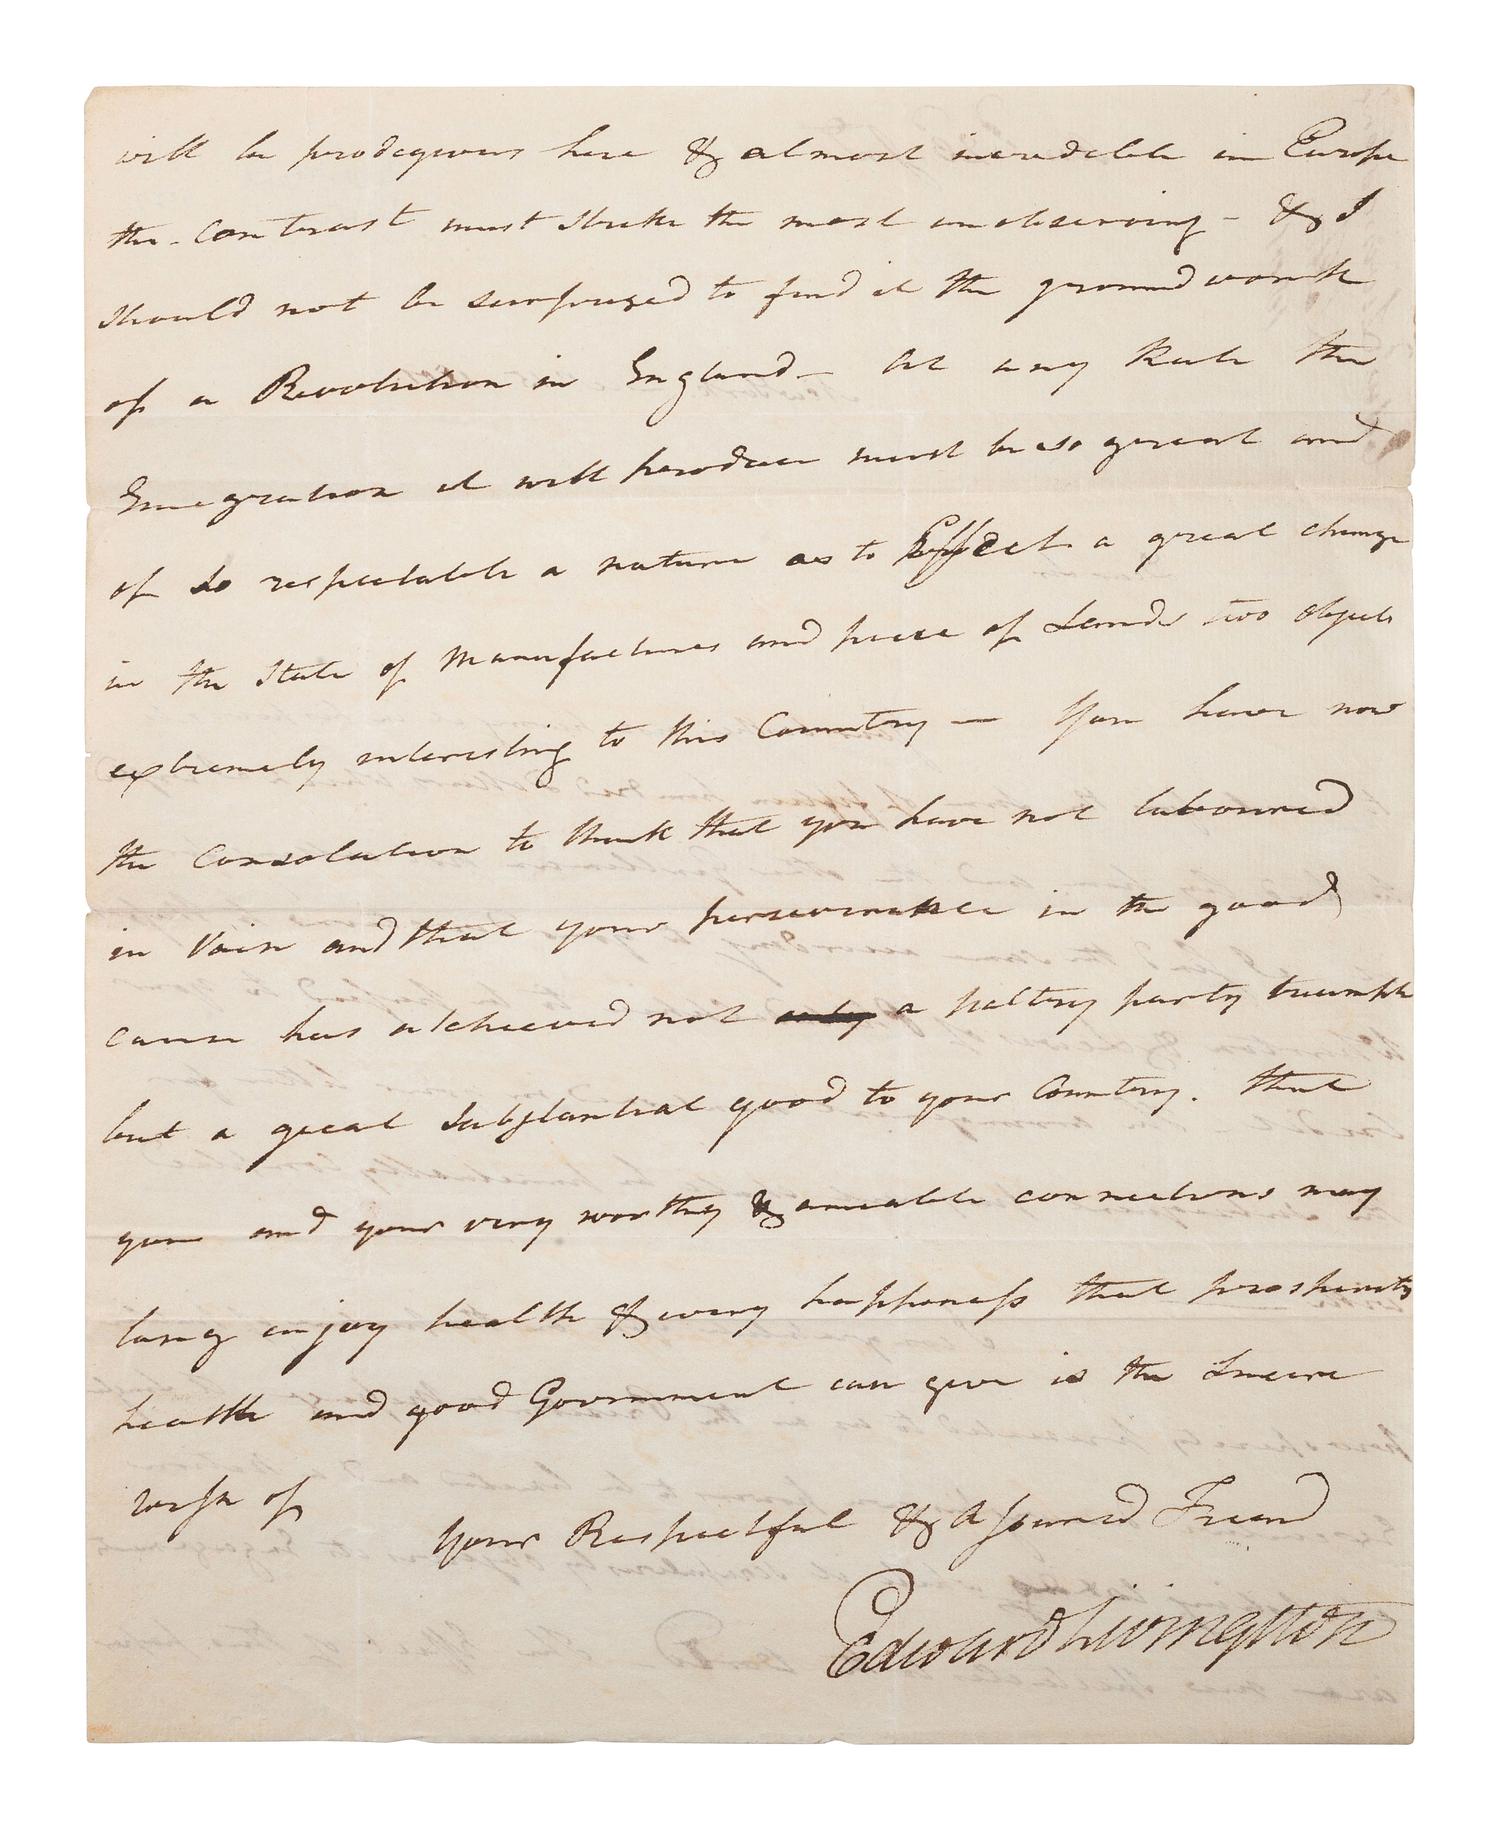 will be prodegeous here & almost incredeble in Europe
the contrast must strike the most unobserving - & I
should not be surprized to find it the ground work
of a Revolution in England - At any Rate the
Emegration it will produce must be so great and
of so respectable a nature as to Effect a great change
in the State of Manufactures and price of Lands two objects
extremely interesting to this Country — You have now
the Consolation to think that you have not laboured
in Vain and that your perseverance in the good
cause has atcheeved not only a paltry party triumph
but a great Substantial good to your Country. That
you and your very worthy & ameable connections may
long enjoy health & every happiness that prosperity
health and good Government can give is the Sincere
wish of
Your Respectful & Assured Friend
Edward Livingston